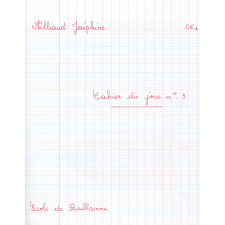 Alliaud Joséphine CE2
Cahier du jour n° 3
École de Reillanne